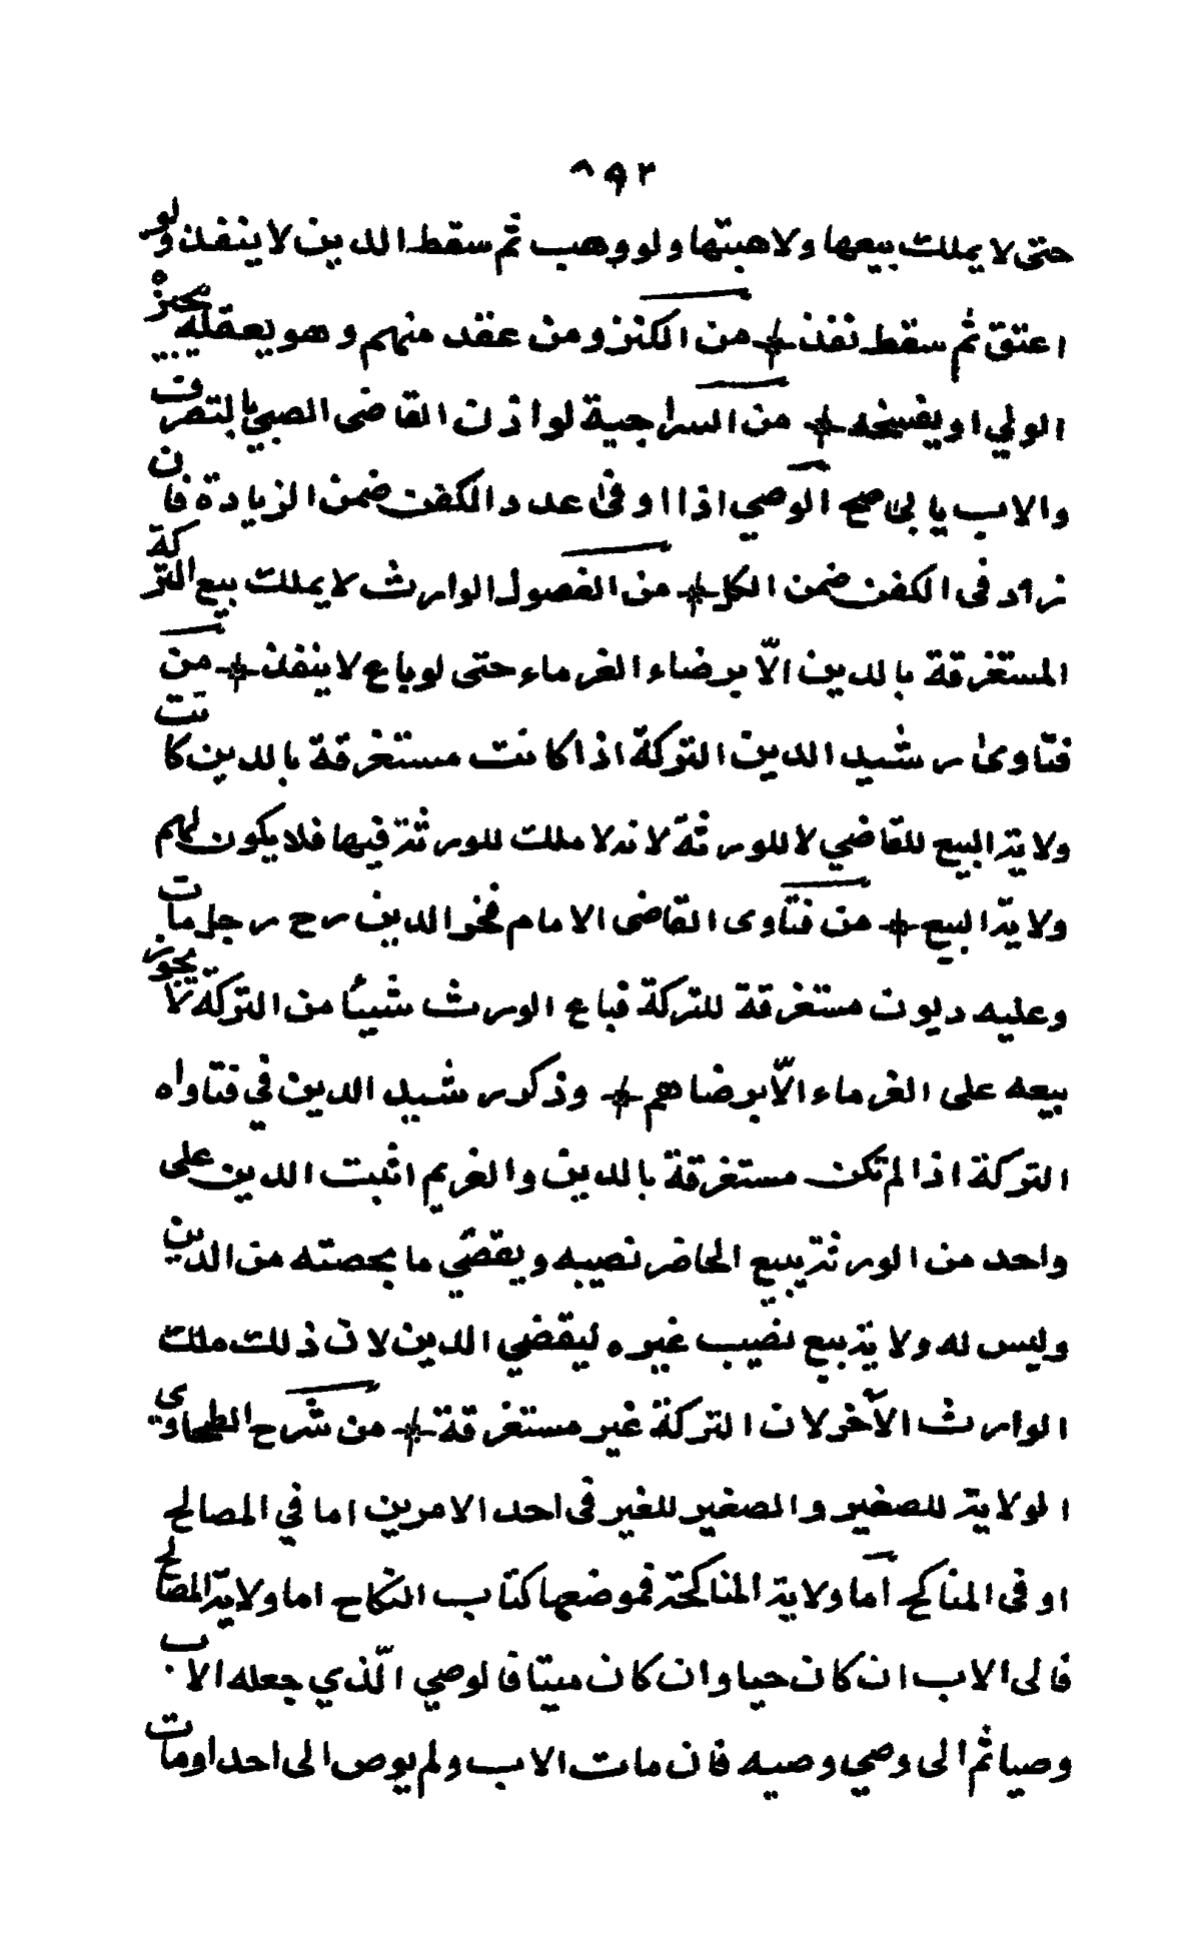 ٨٩٣
حتى لا يملك بيعها ولا هبتها ولو وهب ثم سقط الدين لا ينفذ ولو
اعتق ثم سقط نفذ من الكنز ومن عقد منهم وهو يعقله يجيزه
الولي او يفسخه من السراجية لو اذن القاضى الصبي بالتصرف
والاب يابى صح الوصي اذا اوفى عدد الكفن ضمن الزيادة فان
زاد فى الكفن ضمن الكل من الفصول الوارث لا يملك بيع التركة
المستغرقة بالدين الّا برضاء الغرماء حتى لو باع لا ينفذ من
فتاوى رشيد الدين التركة اذا كانت مستغرقة بالدين كانت
ولاية البيع للقاضي لا للورثة لانه لا ملك للورثة فيها فلا يكون لهم
ولاية البيع من فتاوى القاضى الامام فخر الدين رح رجل مات
وعليه ديون مستغرقة للتركة فباع الورث شيئا من التركة لا يجوز
بيعه على الغرماء الّا برضاهم وذكر رشيد الدين في فتاواه
التركة اذا لم تكن مستغرقة بالدين والغريم اثبت الدين على
واحد من الورثة يبيع الحاضر نصيبه ويقضي ما بحصته من الدين
وليس له ولاية بيع نصيب غيره ليقضي الدين لان ذلك ملك
الوارث الآخر لان التركة غير مستغرقة من شرح الطحاوي
الولاية للصغير والصغير للغير فى احد الامرين اما في المصالح
او فى المناكح اما ولاية المناكحة فموضعها كتاب النكاح اما ولاية المصالح
فالى الاب ان كان حيا وان كان ميتا فالوصي الّذي جعله الاب
وصيا ثم الى وصي وصيه فان مات الاب ولم يوص الى احد او مات